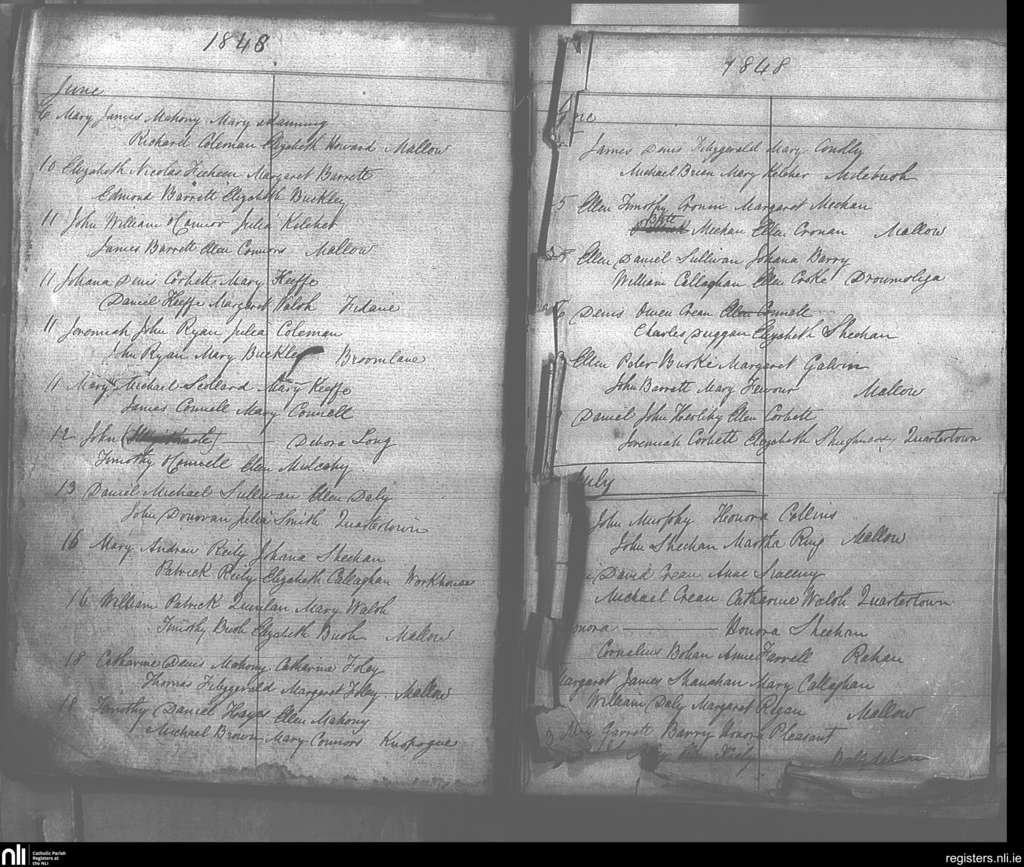 1848
June
6 Mary James Mahony Mary Manning
Richard Coleman Elizabeth Howard Mallow
10 Elizabeth Nicolas Feehem Margaret Barrett
Edmond Barrett Elizabeth Buckley
11 John William O'Connor Julia Kelcher
James Barrett Ellen Connors Mallow
11 Johana Denis Corbett Mary Keeffe
Daniel Keeffe Margaret Walsh
11 Jeremiah John Ryan Julia Coleman
John Ryan Mary Buckley Broomlane
11 Mary Michael Mary Keeffe
James Connell Mary Connell
12 John Debora Long
Timothy O'Connell Ellen Mulcahy
13 Daniel Michael Sullivan Ellen Daly
John Donovan Julia Smith Quartertown
16 Mary Andrew Reily Johana Sheehan
Patrick Reily Elizabeth Callaghan Workhouse
16 William Patrick Quinlan Mary Walsh
Timothy Bush Elizabeth Bush Mallow
18 Catharine Denis Mahony Catharine Foley
Thomas Fitzgerald Margaret Foley Mallow
18 Timothy Daniel Hayes Ellen Mahony
Michael Brown Mary Connors Knopogue
1848
James Denis Fitzgerald Mary Condly
Michael Brien Mary Kelcher Milebush
5 Ellen Timothy Cronin Margaret Meehan
Meehan Ellen Cronan Mallow
25 Ellen Daniel Sullivan Johana Barry
William Callaghan Ellen Croke Dromsliga
Denis Owen Crean Ellen Connell
Charles Duggan Elizabeth Sheehan
Ellen Peter Burke Margaret Galvin
John Barrett Mary Mallow
Daniel John Herlihy Ellen Corbett
Jeremiah Corbett Elizabeth Quartertown
July
John Murphy Honora Collins
John Sheehan Martha Ring Mallow
David Crean Anne
Michael Crean Catharine Walsh Quartertown
Honora Sheehan
Cornelius Bohan Anne Farrell Rahan
Margaret James Shanahan Mary Callaghan
William Daly Margaret Regan Mallow
Garrett Barry Honora Pleasant
nli
Catholic Parish
Registers at
the NLI
registers.nli.ie